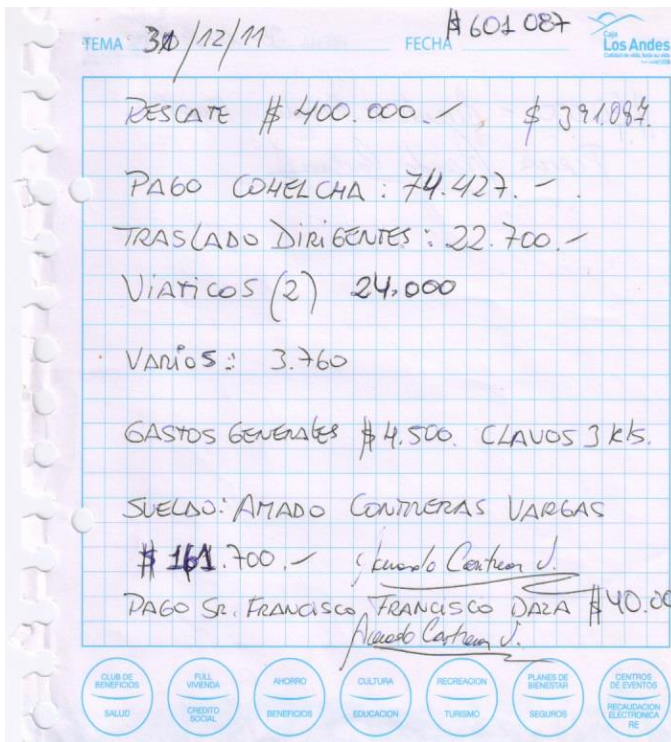 $ 601 087
TEMA 31/12/11 FECHA Caja Los Andes
RESCATE $ 400.000.- $ 391.087.
PAGO COHELCHA: 74.427.-
TRASLADO DIRIGENTES: 22.700.-
VIATICOS (2) 24.000
VARIOS: 3.760
GASTOS GENERALES $ 4.500. CLAVOS 3 Kls.
SUELDO: AMADO CONTRERAS VARGAS
$ 161.700.- Amado Contreras V.
PAGO SR. FRANCISCO, FRANCISCO DAZA $ 40.00
Amado Contreras V.
CLUB DE BENEFICIOS
SALUD
FULL VIVIENDA
CREDITO SOCIAL
AHORRO
BENEFICIOS
CULTURA
EDUCACION
RECREACION
TURISMO
PLANES DE BIENESTAR
SEGUROS
CENTROS DE EVENTOS
RECAUDACION ELECTRONICA
RE